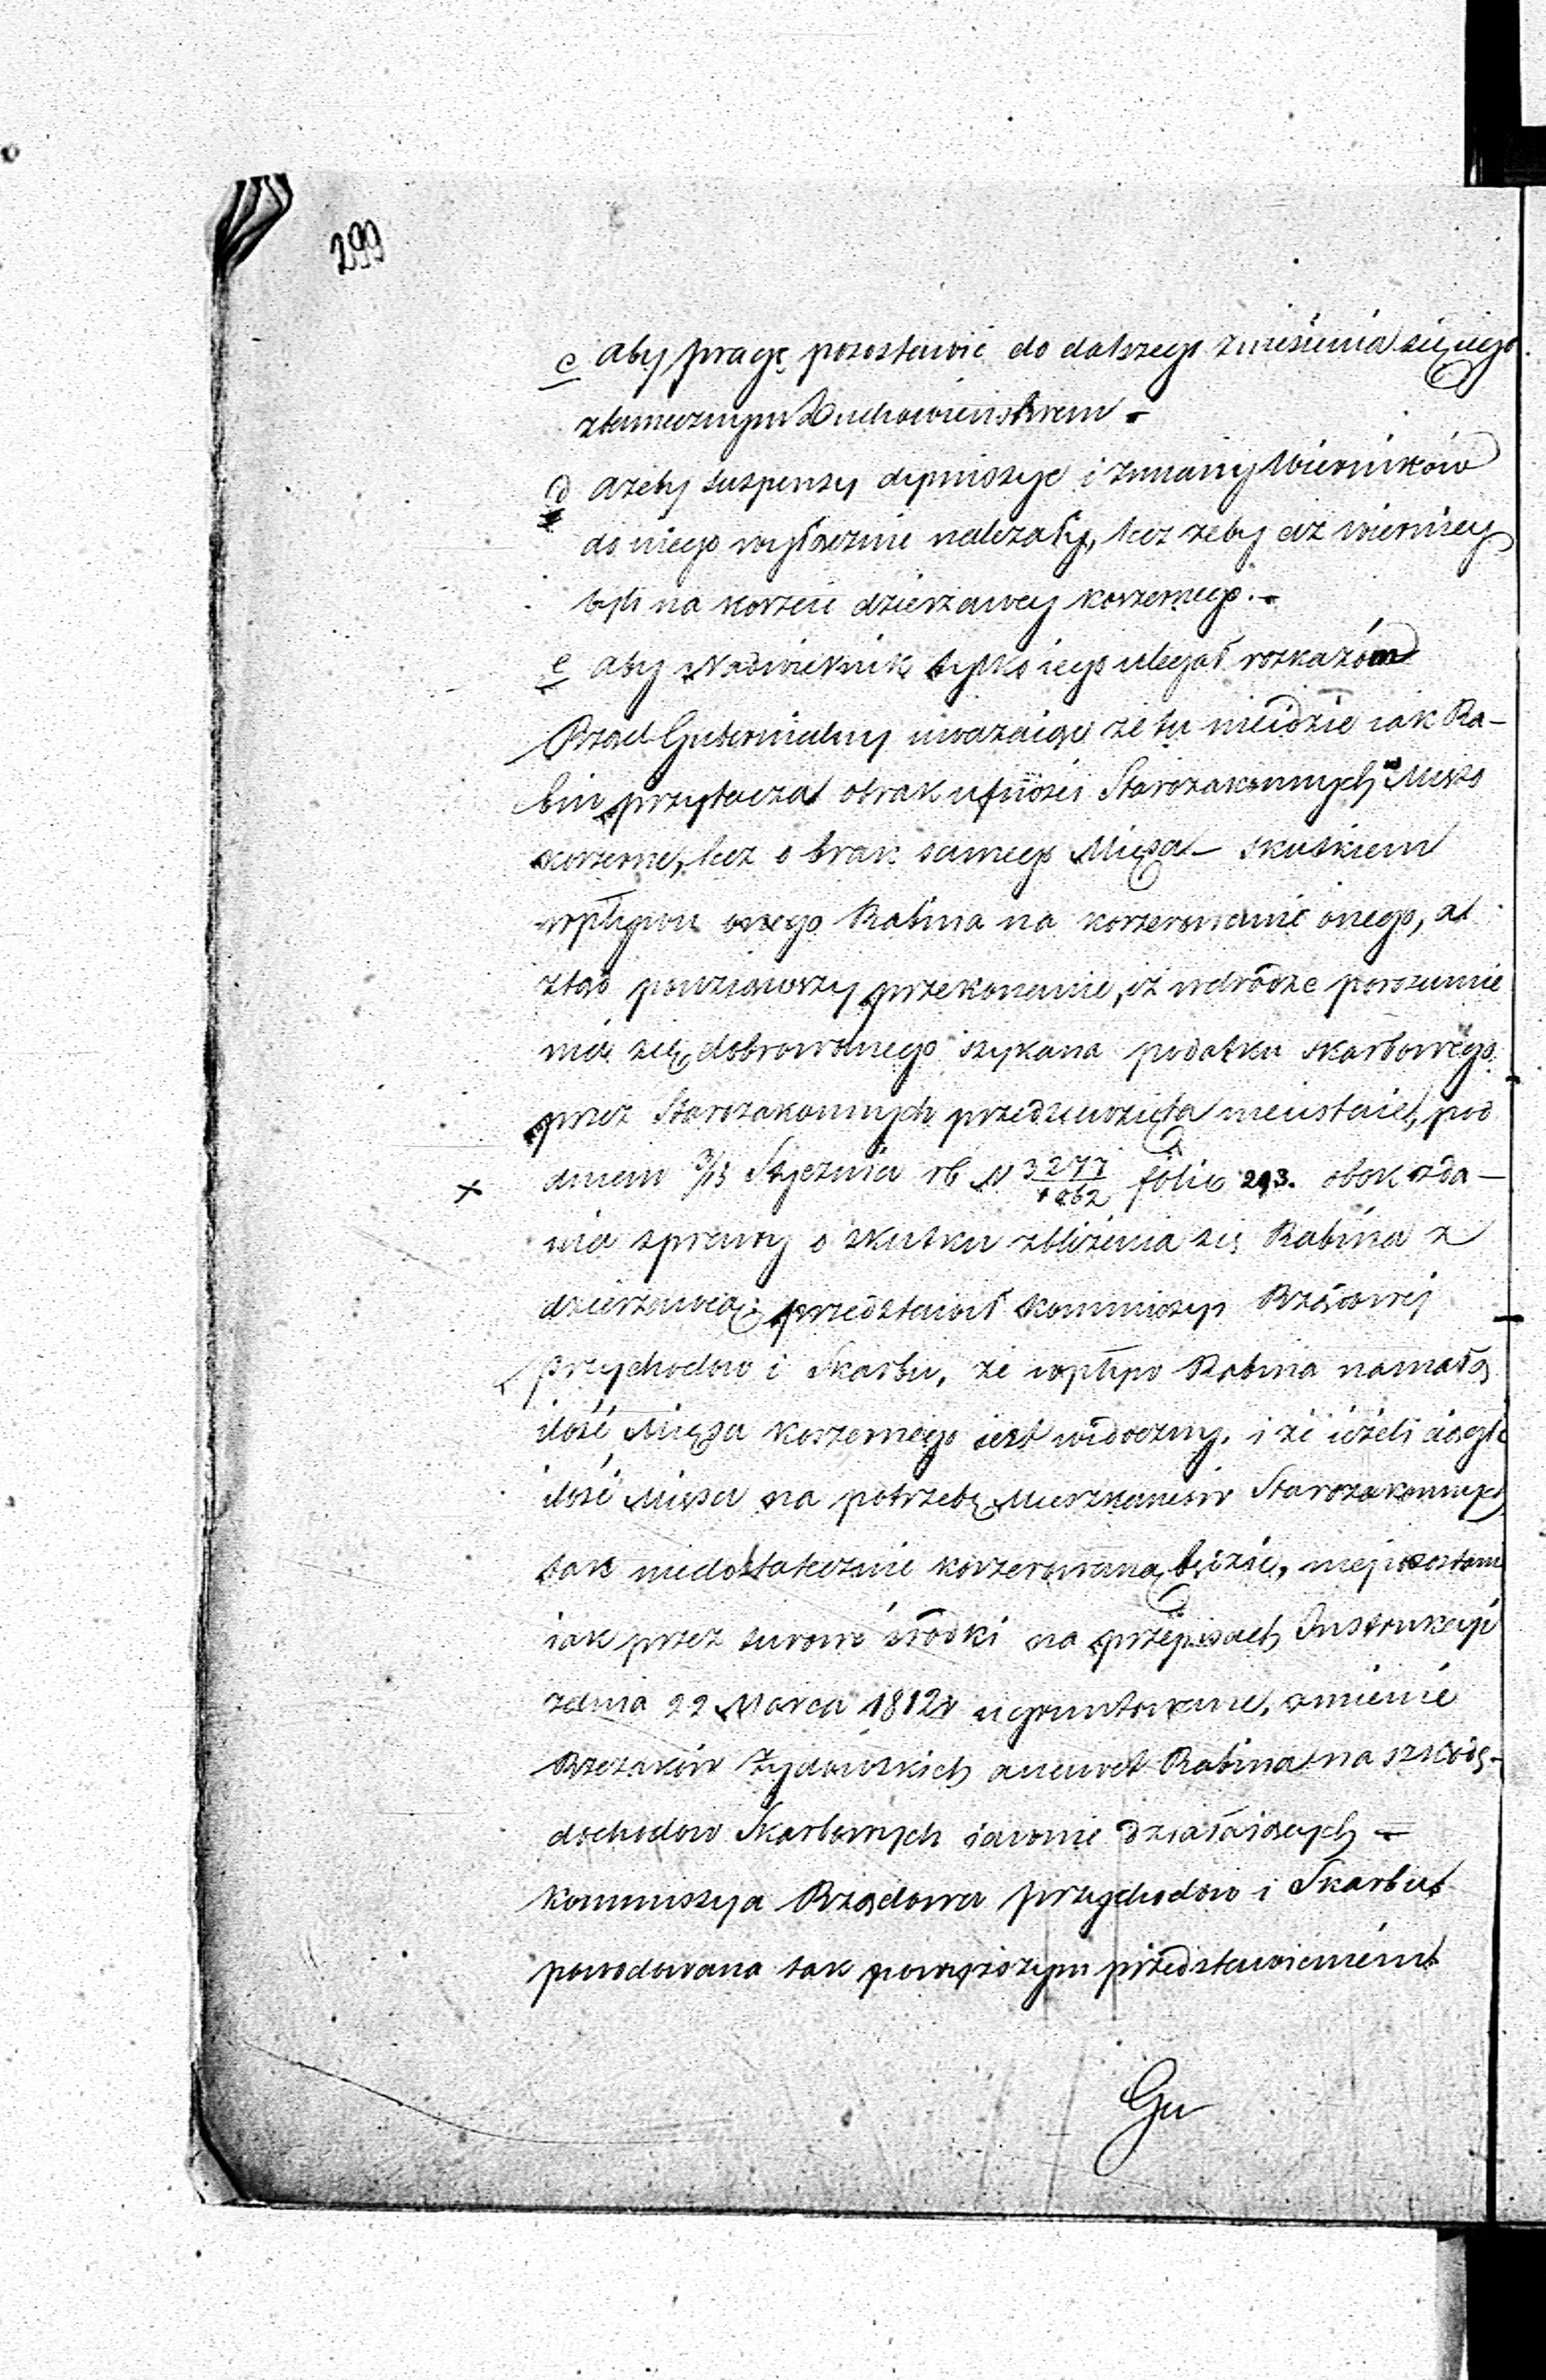 299
c aby Pragę pozostawić do dalszego zniesienia się jego
z tamecznym Duchowieństwem –
d ażeby suspensy dymissye i zmiany Wierników
do niego wyłącznie należały, lecz żeby ciż wiernicy
byli na koszcie dzierżawcy koszernego. –
e aby Nadwiernik tylko iego ulegał rozkazóm
Rząd Gubernialny uważaiąc że tu nieidzie iak Ra-
bin przytacza o brak ufności Starozakonnych w Mięso
koszerne, lecz o brak samego Mięsa – skutkiem
wpływu onego Rabina na koszerowanie onego, a
ztąd powziąwszy przekonanie, iż w drodze porozumie
nia się dobrowolnego szykana podatku skarbowego
przez Starozakonnych przedsięwzięta nieustaie, pod
x dniem 3/15 Stycznia rb N 3277/ folio 293. obok zda-
nia sprawy o skutku zbliżenia się Rabina z
dzierżawcą: przedstawił Kommissyi Rządowéj
Przychodow i Skarbu, że wpływ Rabina na małą
ilość Mięsa koszernego iest widoczny, i że ieżeli ciągle
ilość Mięsa na potrzebę Mieszkańców Starozakonnych
tak niedostatecznie koszerowaną będzie, niepozostanie
iak przez surowe środki na przepisach Instrukcyi
z dnia 22 Marca 1812r ugruntowane, zmienić
Rzezaków Żydowskich a nawet Rabina na szkodę
dochodow Skarbowych iawnie działaiących –
Kommissya Rządowa Przychodow i Skarbu
powodowana tak powyższym przedstawieniem
Gu